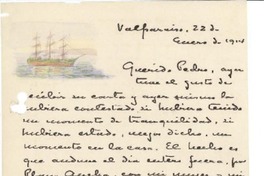 Valparaiso, 22 de
Enero de 191
Querido Pedro, ayer
tuve el gusto de
recibir su carta y ayer mismo la
hubiera contestado si hubiera tenido
un momento de tranquilidad, si
hubiera estado, mejor dicho, un
momento en la casa. El hecho es
que anduve el dia entero fuera, por
Playa Ancha, con mi